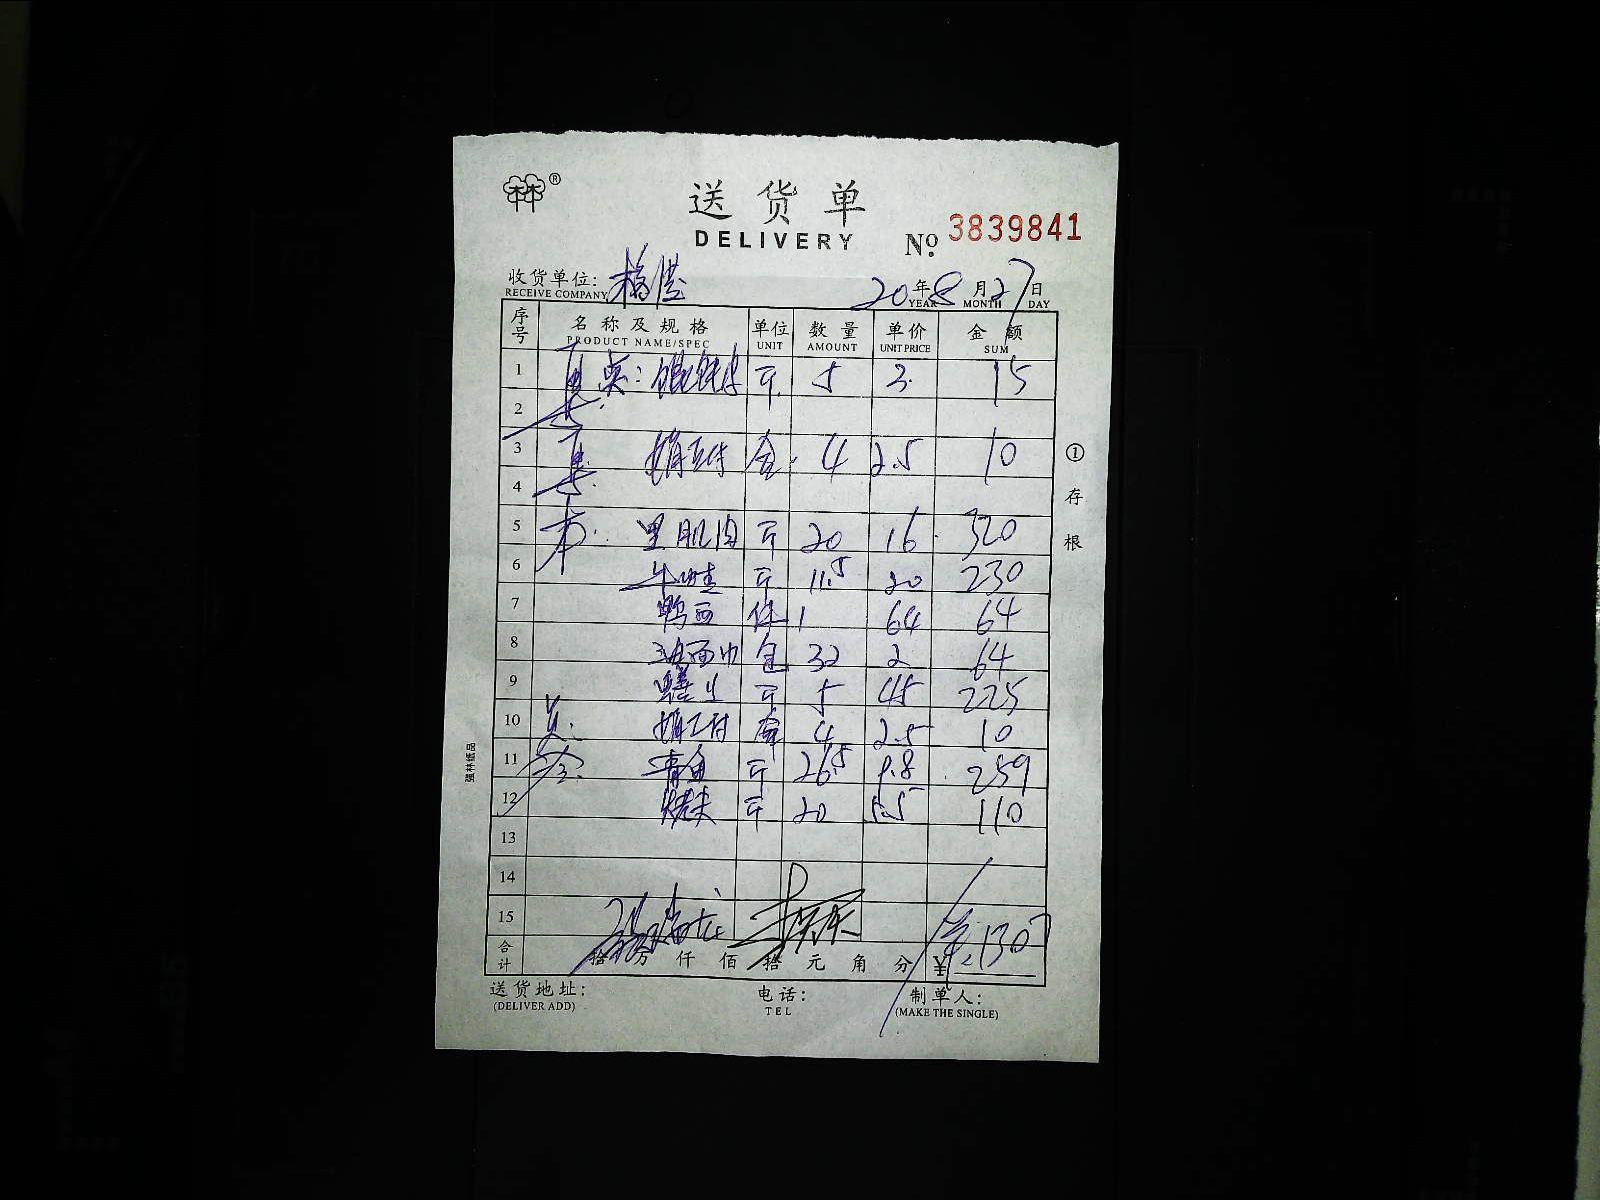 林林®
送货单
DELIVERY
№ 3839841
收货单位:
RECEIVE COMPANY
20年8月27日
YEAR MONTH DAY
序号 名称及规格 单位 数量 单价 金额
PRODUCT NAME/SPEC UNIT AMOUNT UNIT PRICE SUM
1 点: 馄饨皮 斤 5 3. 15
2
3 盒 4 2.5 10
4
5 里肌肉 斤 20 16 320
6 牛蛙 斤 11.5 20 230
7 件 1 64 64
8 包 32 2 64
9 斤 5 45 225
10 4 2.5 10
11 青鱼 斤 26.5 9.8 259
12 烤夫 斤 20 5.5 110
13
14
15
合计 拾 万 仟 佰 拾 元 角 分 ¥ 1307
送货地址:
(DELIVER ADD)
电话:
TEL
制单人:
(MAKE THE SINGLE)
①存根
强林纸品